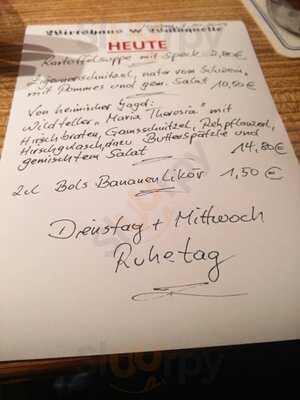 Wirtshaus
HEUTE
Kartoffelsuppe mit Speck 3,80€
Zigeunerschnitzel, natur vom Schwein,
mit Pommes und gem. Salat 10,50€
Von heimischer Jagd:
Wildteller „Maria Theresia" mit
Hirschbraten, Gamsschnitzel, Rehpflanzerl,
Hirschgulasch, dazu Butterspätzle und
gemischtem Salat 14,80€
2cl Bols Bananen Likör 1,50€
Dienstag + Mittwoch
Ruhetag
sluurpy
sluurpy